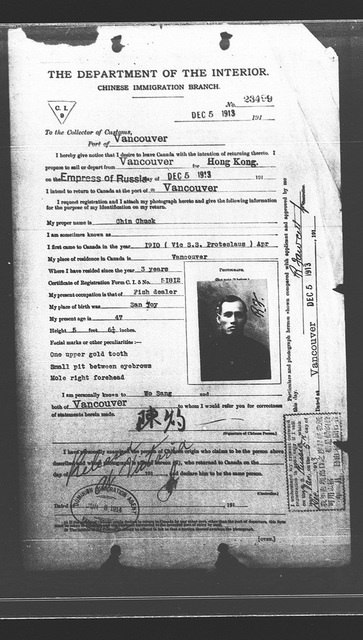 THE DEPARTMENT OF THE INTERIOR.
CHINESE IMMIGRATION BRANCH.
C. I.
9
No.
DEC 5 1913 191
To the Collector of Customs,
Port of Vancouver
I hereby give notice that I desire to leave Canada with the intention of returning thereto. I
propose to sail or depart from Vancouver for Hong Kong.
on the Empress of Russia day of DEC 5 1913 191
I intend to return to Canada at the port of Vancouver
I request registration and I attach my photograph hereto and give the following information
for the purpose of my identification on my return.
My proper name is Chin Chuck
I am sometimes known as
I first came to Canada in the year 1910 ( Via S.S. Protesilaus ) Apr
My place of residence in Canada is Vancouver
Where I have resided since the year 3 years
Certificate of Registration Form C. I. 5 No. 51812
My present occupation is that of Fish dealer
My place of birth was San
My present age is 47
Height 5 feet inches.
Facial marks or other peculiarities :—
One upper gold tooth
Small pit between eyebrows
Mole right forehead
PHOTOGRAPH.
I am personally known to Wo Sang and
both of Vancouver to whom I refer you for correctness
of statements herein made.
陳灼
(Signature of Chinese Person.)
I have personally examined the person of Chinese origin who claims to be the person above
described and whose photograph is annexed hereto, who returned to Canada on the
day of 191 and declare him to be the same person.
(Controller.)
Dated 191
[OVER.]
Particulars and photograph hereon shown compared with applicant and approved by me
this day.
DEC 5 1913
Dated at Vancouver 191